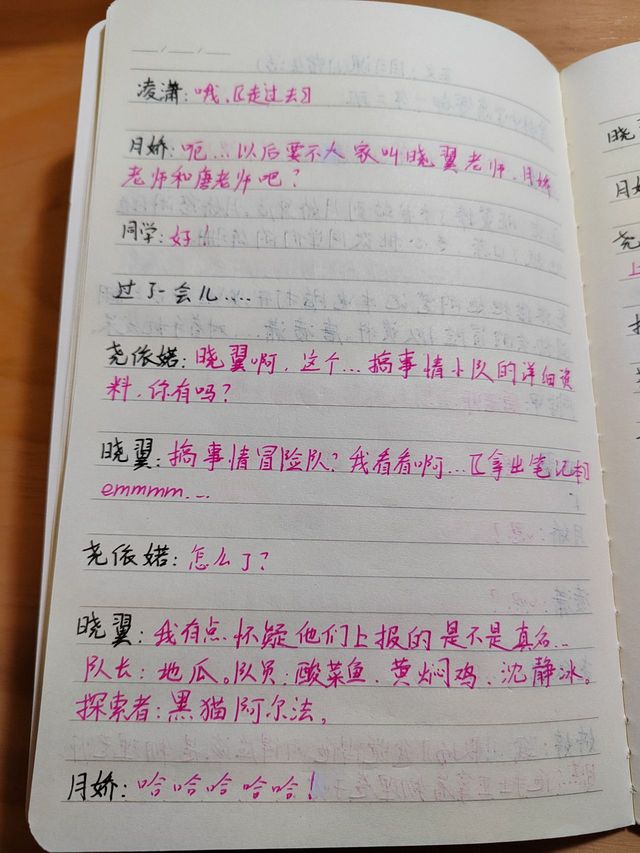 凌潇：哦，〖走过去〗
月娇：呃...以后要不大家叫晓翼老师、月娇
老师和唐老师吧？
同学：好！
过了一会儿....
尧依婼：晓翼啊，这个...搞事情小队的详细资
料，你有吗？
晓翼：搞事情冒险队？我看看啊...〖拿出笔记本〗
emmmm...
尧依婼：怎么了？
晓翼：我有点怀疑他们上报的是不是真名...
队长：地瓜。队员：酸菜鱼、黄焖鸡、沈静冰。
探索者：黑猫阿尔法。
月娇：哈哈哈哈哈！
晓
月女
尧
上